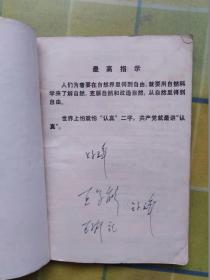 最高指示
人们为着要在自然界里得到自由，就要用自然科
学来了解自然，克服自然和改造自然，从自然里得到
自由。
世界上怕就怕“认真”二字，共产党就最讲“认
真”。